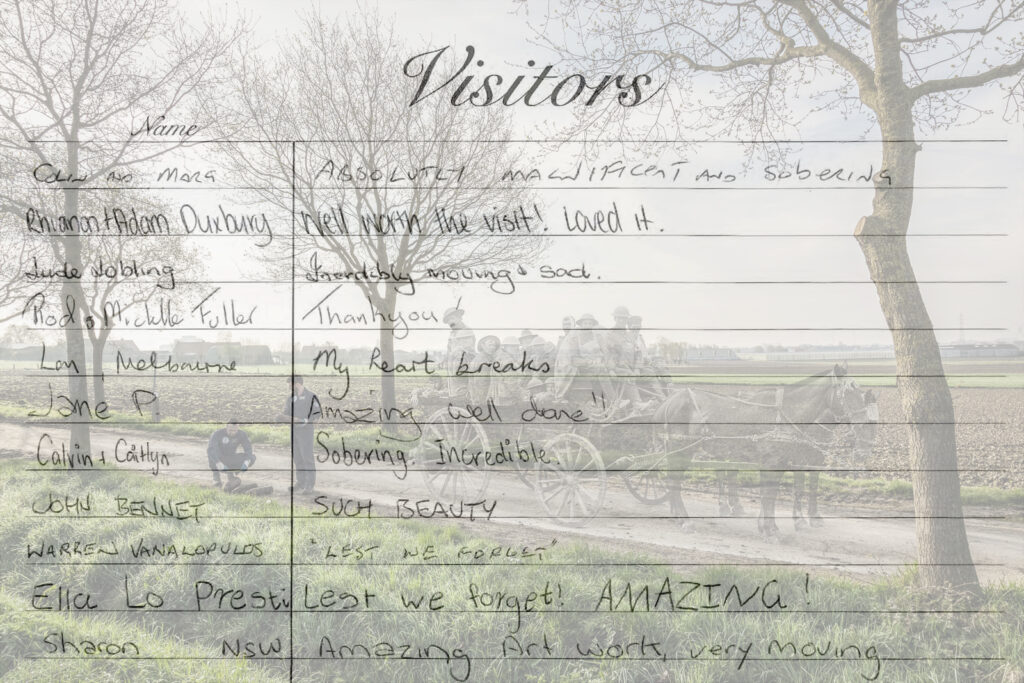 Visitors
Name
Colin AND Marg ABSOLUTLY MAGNIFICENT AND SOBERING
Rhiannon + Adam Duxbury Well worth the visit! Loved it.
Jude Nobling Inerdibly moving & sad.
Rod & Michelle Fuller Thankyou
Lan Melbourne My heart breaks
Jane P Amazing well done!!
Calvin + Caitlyn Sobering. Incredible.
JOHN BENNET SUCH BEAUTY
WARREN VANALOPULOS "LEST WE FORGET"
Ella Lo Presti Lest we forget! AMAZING!
Sharon NSW Amazing Art work, very moving